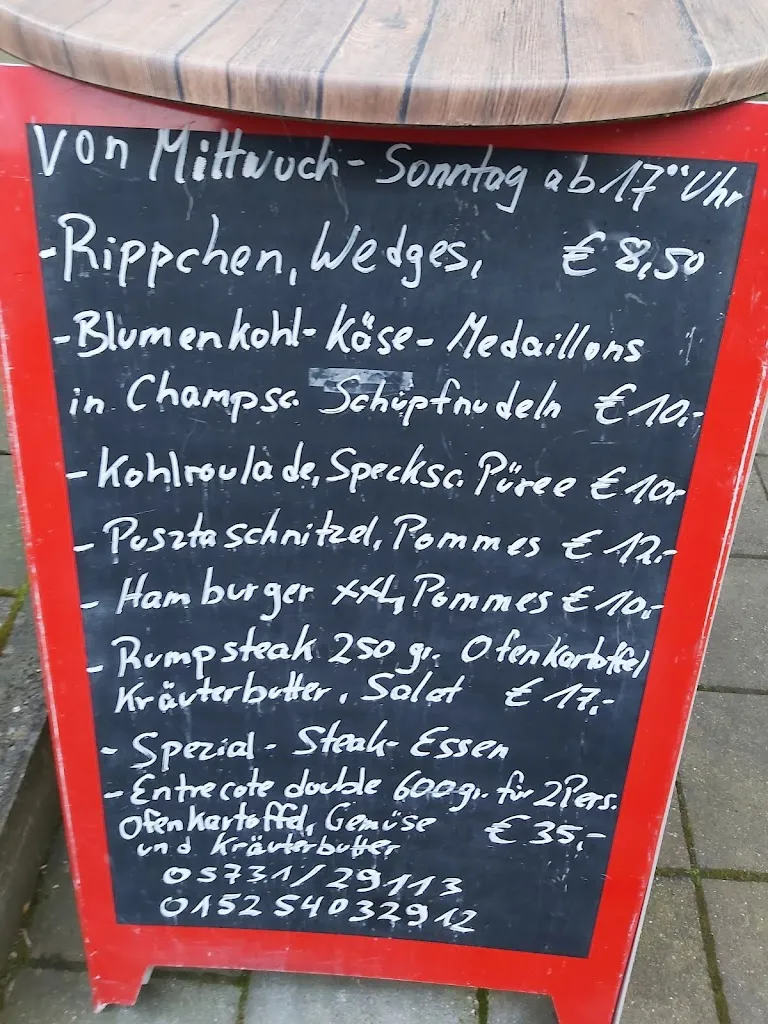 Von Mittwoch - Sonntag ab 17°° Uhr
- Rippchen, Wedges, € 8,50
- Blumenkohl - Käse - Medaillons
in Champsc. Schupfnudeln € 10,-
- Kohlroulade, Specksc. Püree € 10,-
- Pusztaschnitzel, Pommes € 12,-
- Hamburger XXL, Pommes € 10,-
- Rumpsteak 250 gr. Ofenkartoffel
Kräuterbutter, Salat € 17,-
- Spezial - Steak - Essen
- Entrecote double 600 gr. für 2 Pers.
Ofenkartoffel, Gemüse € 35,-
und Kräuterbutter
05731/29113
015254032912